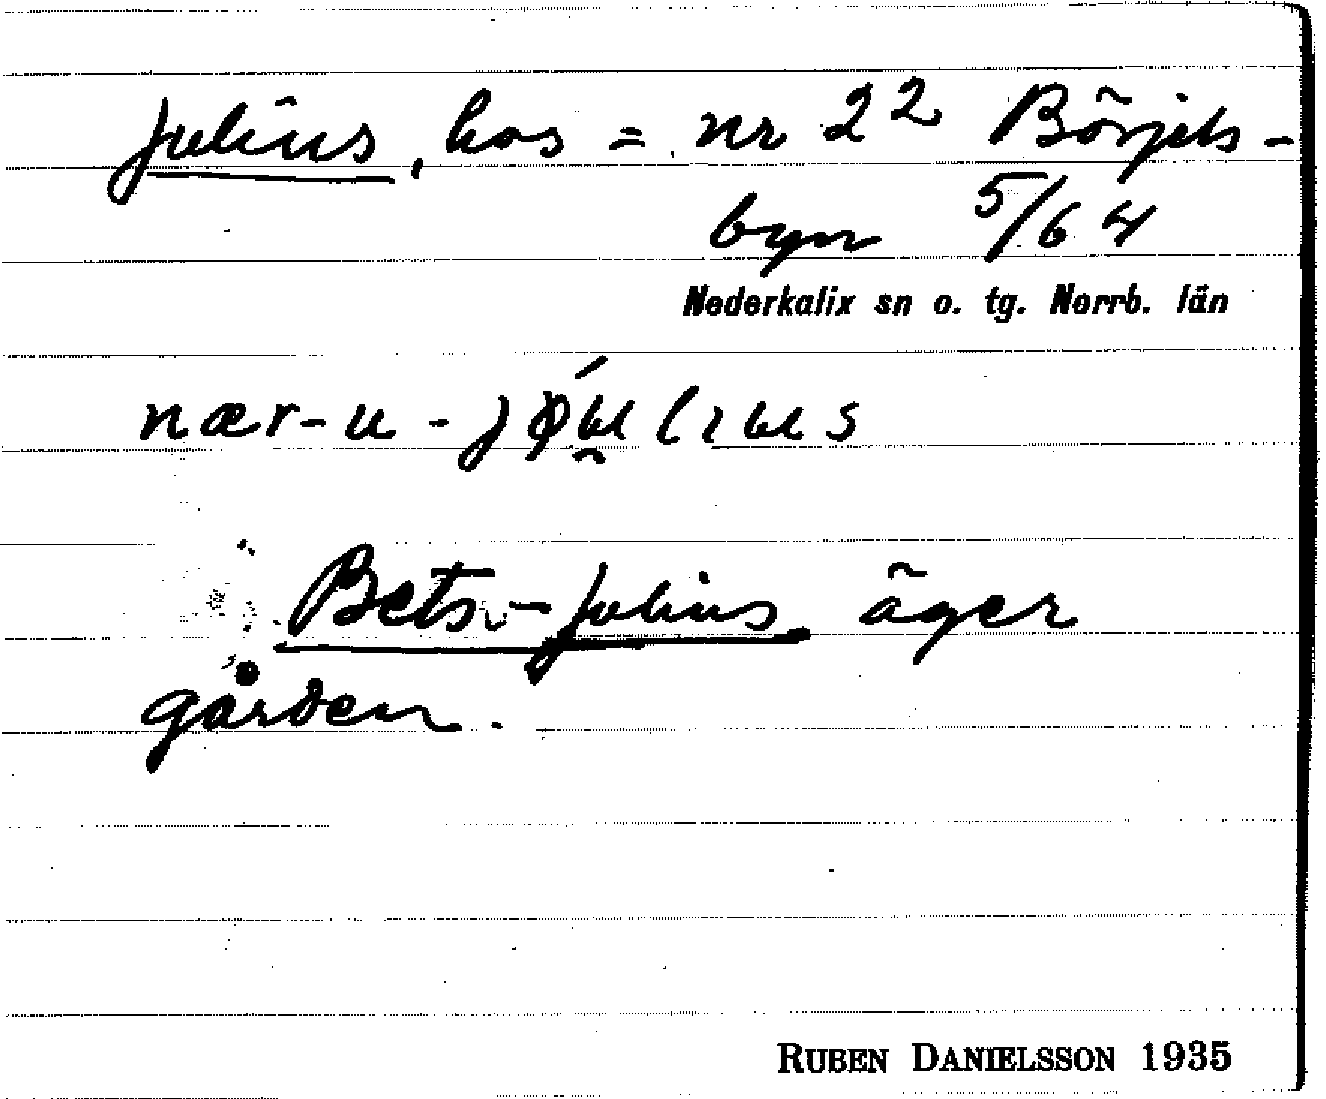 Julius, hos = nr 22 Börjels-
byn 5/64
Nederkalix sn o. tg. Norrb. län
nær-u-jϕɯ́lıɯs
Bets-Julius äger
gården.
RUBEN DANIELSSON 1935